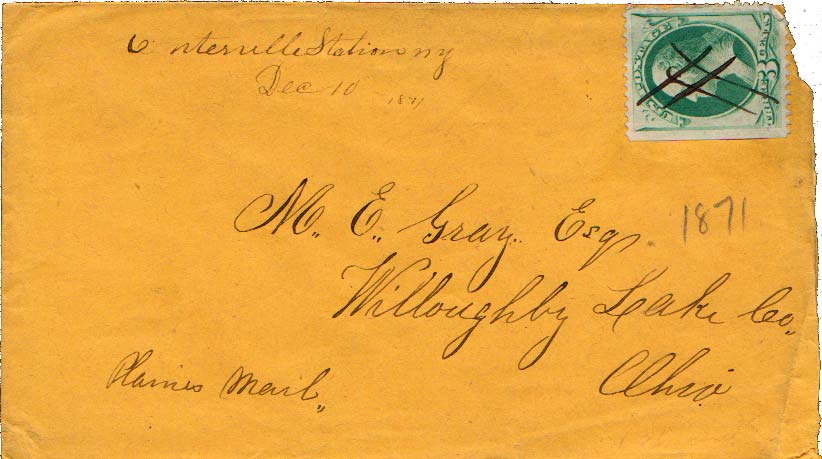 Centerville Station ny
Dec 10 1871
M. E. Gray. Esq
1871
Willoughby Lake Co.
Ohio
Plaines Mail
U.S. POSTAGE
3